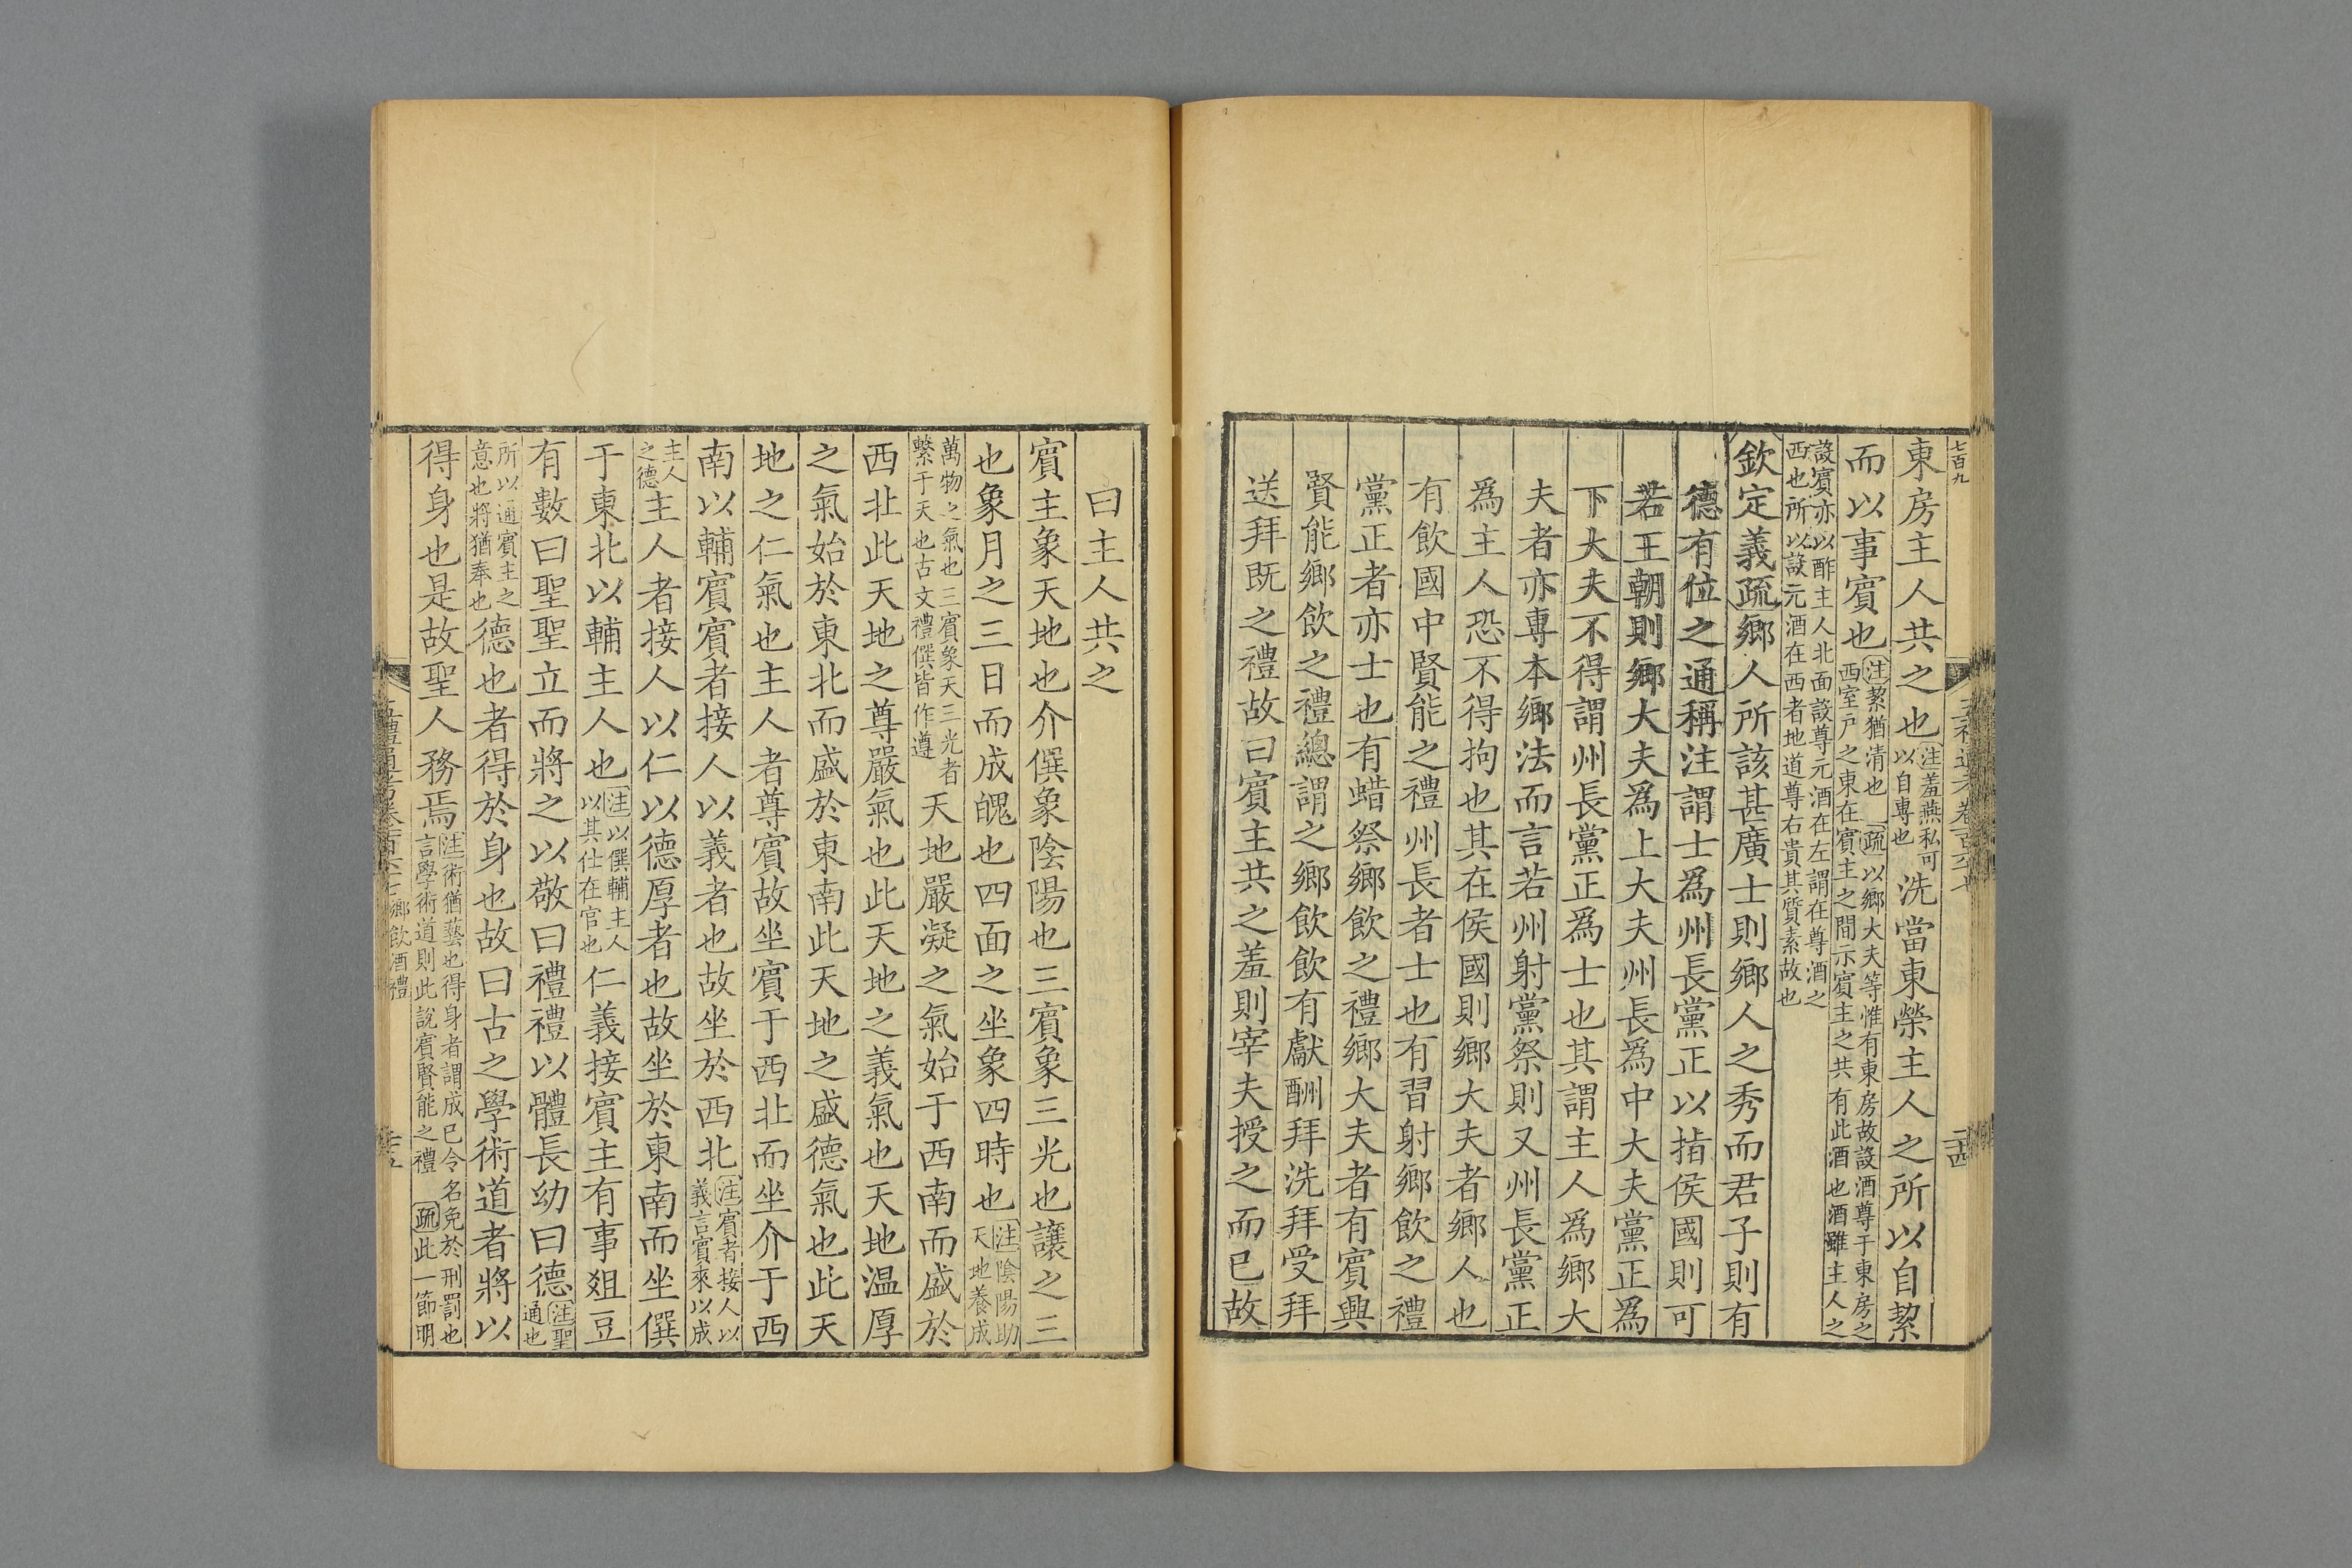 七百九
東房主人共之也注羞燕私可以自專也洗當東榮主人之所以自絜
而以事賓也注絜猶清也疏以鄉大夫等惟有東房故設酒尊于東房之西室戶之東在賓主之間示賓主之共有此酒也酒雖主人之
設賓亦以酢主人北面設尊元酒在左謂在尊酒之西也所以設元酒在西者地道尊右貴其質素故也
欽定義疏鄉人所該甚廣士則鄉人之秀而君子則有
德有位之通稱注謂士爲州長黨正以指侯國則可
若王朝則鄉大夫爲上大夫州長爲中大夫黨正爲
下大夫不得謂州長黨正爲士也其謂主人爲鄉大
夫者亦專本鄉法而言若州射黨祭則又州長黨正
爲主人恐不得拘也其在侯國則鄉大夫者鄉人也
有飲國中賢能之禮州長者士也有習射鄉飲之禮
黨正者亦士也有蜡祭鄉飲之禮鄉大夫者有賓興
賢能鄉飲之禮總謂之鄉飲飲有獻酬拜洗拜受拜
送拜既之禮故曰賓主共之羞則宰夫授之而已故
二十四
曰主人共之
賓主象天地也介僎象陰陽也三賓象三光也讓之三
也象月之三日而成魄也四面之坐象四時也注陰陽助天地養成
萬物之氣也三賓象天三光者繫于天也古文禮僎皆作遵天地嚴凝之氣始于西南而盛於
西北此天地之尊嚴氣也此天地之義氣也天地温厚
之氣始於東北而盛於東南此天地之盛德氣也此天
地之仁氣也主人者尊賓故坐賓于西北而坐介于西
南以輔賓賓者接人以義者也故坐於西北注賓者接人以義言賓來以成
主人之德主人者接人以仁以德厚者也故坐於東南而坐僎
于東北以輔主人也注以僎輔主人以其仕在官也仁義接賓主有事俎豆
有數曰聖聖立而將之以敬曰禮禮以體長幼曰德注聖通也
所以通賓主之意也將猶奉也德也者得於身也故曰古之學術道者將以
得身也是故聖人務焉注術猶藝也得身者謂成己令名免於刑罰也言學術道則此說賓賢能之禮疏此一節明
五禮通考卷一百六十七鄉飲酒禮
二十五